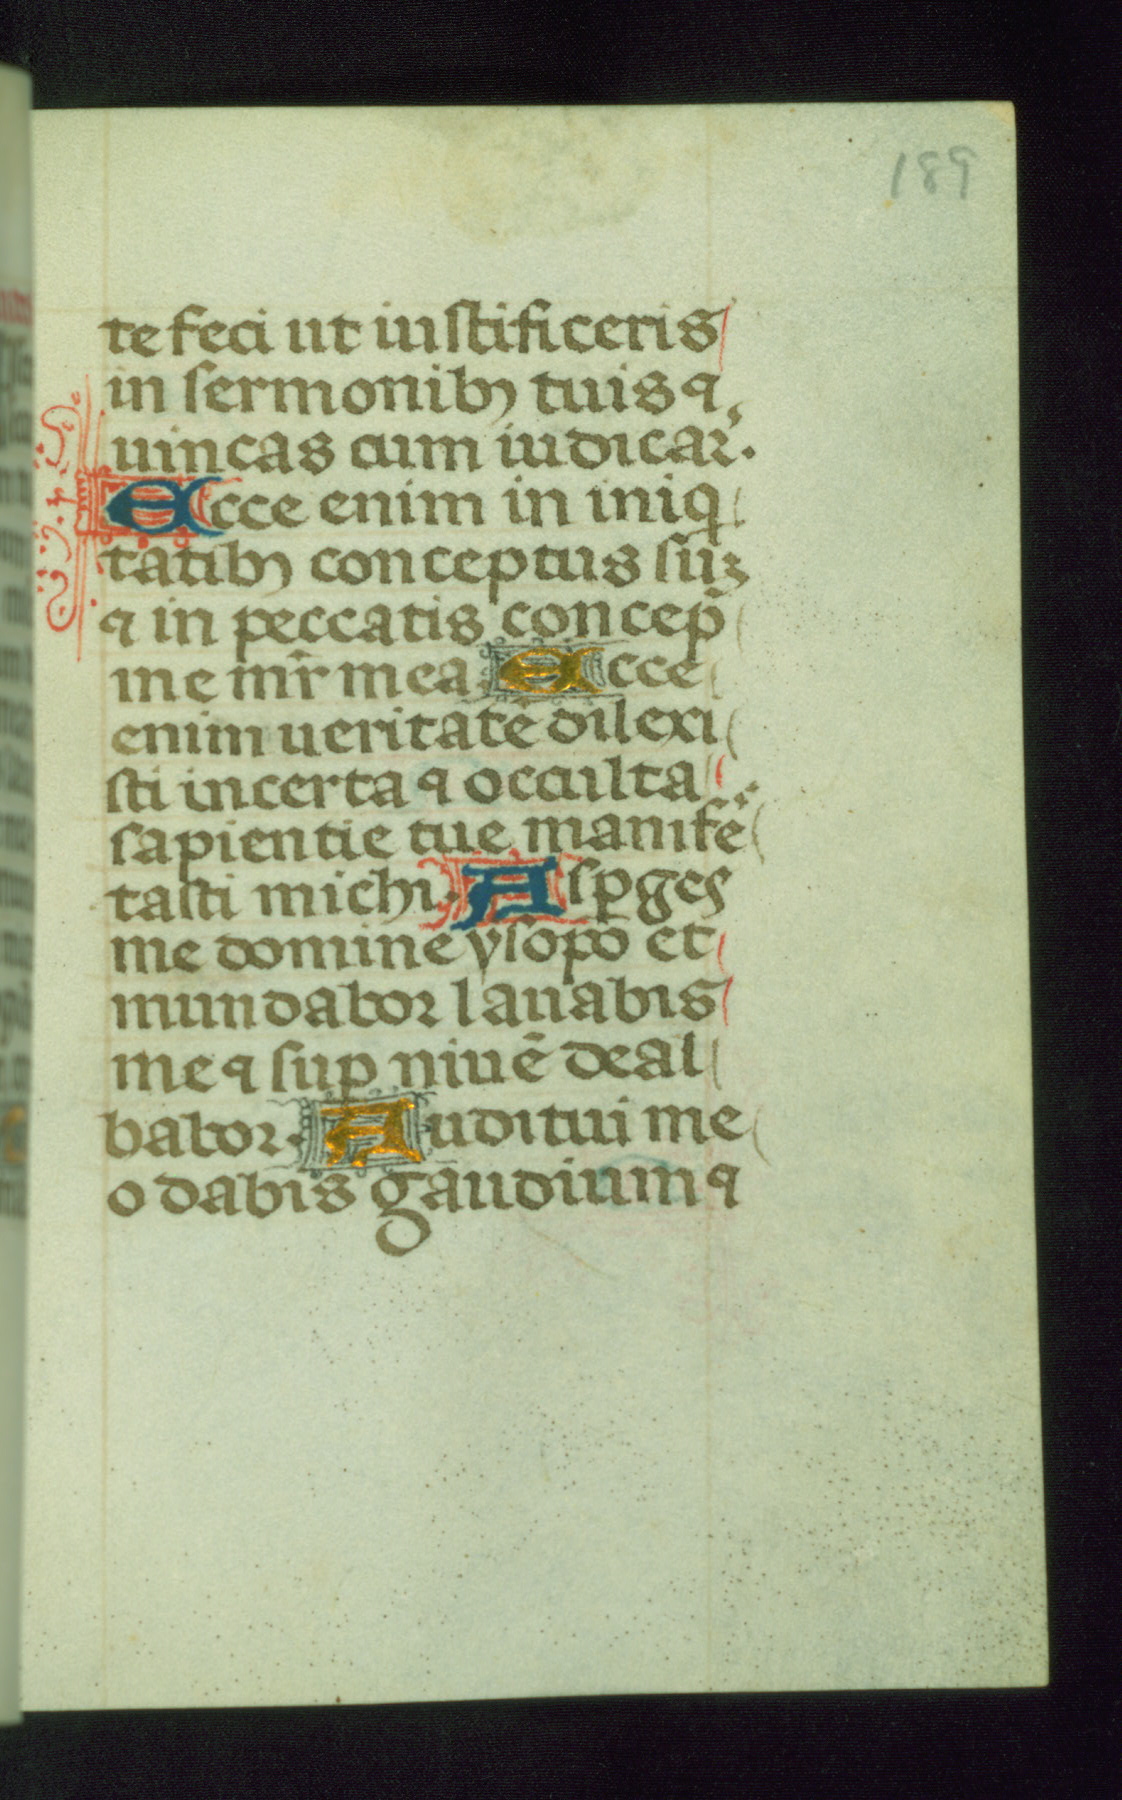 189
te feci ut iustificeris
in sermonibꝫ tuis ⁊
uincas cum iudicar̃.
Ecce enim in iniq̃
tatibꝫ conceptus suꝫ
⁊ in peccatis concep̃
me mr̃ mea. Ecce
enim ueritatẽ dilexi
sti incerta ⁊ occulta
sapientie tue manifẽ
tasti michi. Asꝑges
me domine ysopo et
mundabor lauabis
me ⁊ suꝑ niuẽ deal
babor. Auditui me
o dabis gaudium ⁊